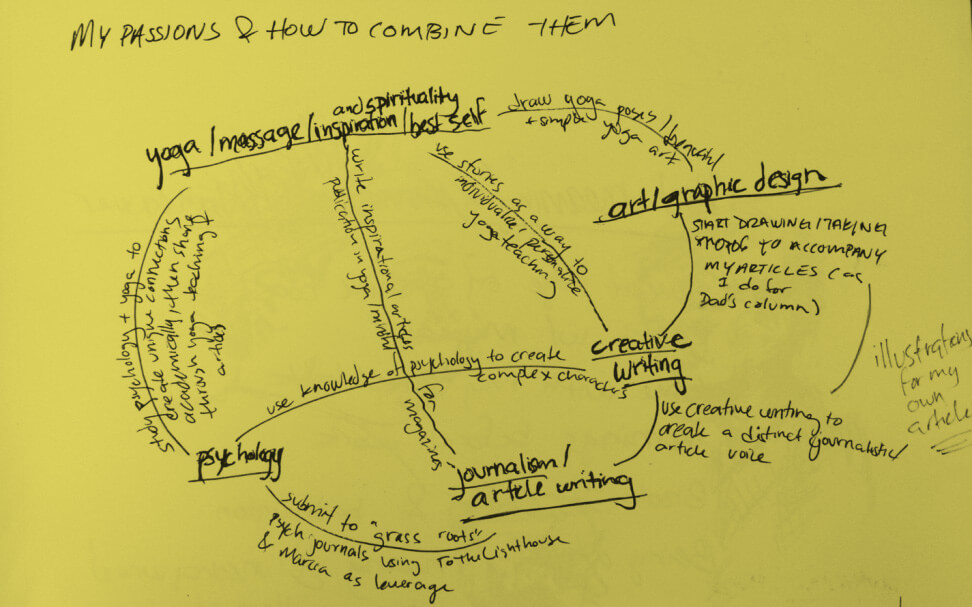 MY PASSIONS & HOW TO COMBINE THEM
and spirituality
yoga/massage/inspiration/best self
draw yoga poses/beautiful
+ simple yoga art
art/graphic design
START DRAWING/TAKING
PHOTOS TO ACCOMPANY
MY ARTICLES (as
I do for
Dad's column)
illustrations
for my
own
article
use stories as a way to
individualize/personalize
yoga teaching
write inspirational articles for magazines
publication in yoga/mindful
study psychology + yoga to
create unique connections
academically, then share
through yoga teaching +
articles
creative
writing
use knowledge of psychology to create
complex characters
use creative writing to
create a distinct journalistic/
article voice
psychology
journalism/
article writing
submit to "grass roots"
psych journals using ToTheLighthouse
& Marcia as leverage